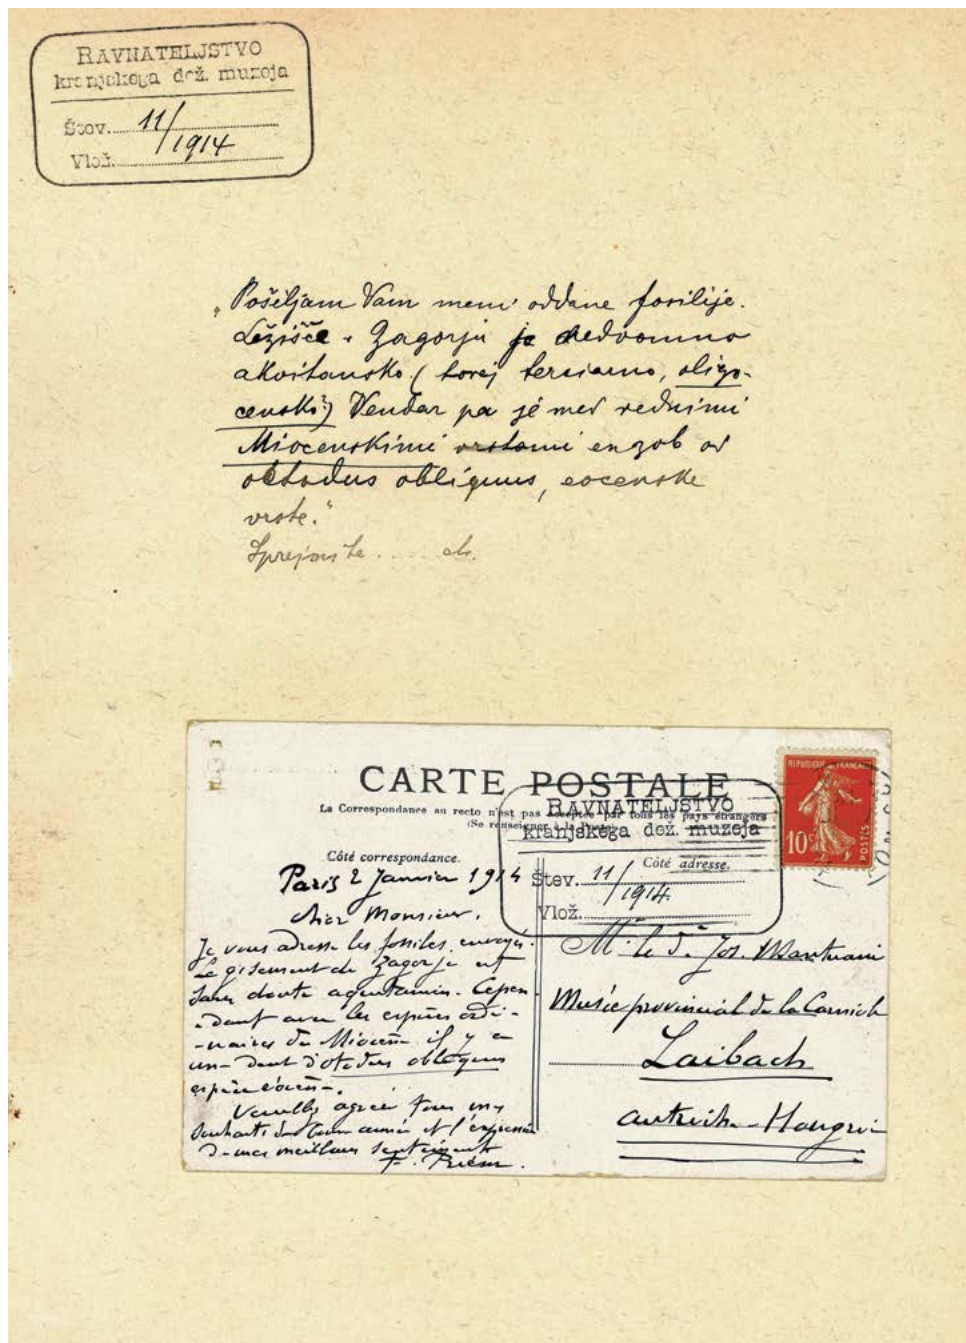 RAVNATELJSTVO
kranjskega dež. muzeja
Štev. 11/
Vlož. 1914
„Pošiljam Vam meni oddane fosilije.
Ležišče v Zagorju je nedvomno
akvitansko (torej terciarno, oligo-
censko?) Vendar pa je med rednimi
Miocenskimi vrstami en zob od
otodus obliquus, eocenske
vrste."
Sprejmite .... etc.
CARTE POSTALE
La Correspondance au recto n'est pas acceptée par tous les pays étrangers
(Se renseigner à la Poste)
RAVNATELJSTVO
kranjskega dež. muzeja
Štev. 11/
Vlož. 1914
REPUBLIQUE FRANÇAISE
10c
POSTES
Côté correspondance.
Côté adresse.
Paris 2 Janvier 1914
Cher Monsieur.
Je vous adresse les fossiles envoyés.
Le gisement de Zagorje est
sans doute aquitanien. Cepen-
-dant avec les espèces ordi-
-naires du Miocène il y a
une dent d'otodus obliquus
espèce éocène.
Veuillez agréer tous mes
souhaits de bonne année et l'expression
de mes meilleurs sentiments
F. Priem.
Mr le Dr Jos. Mantuani
Musée provincial de la Carniole
Laibach
Autriche-Hongrie